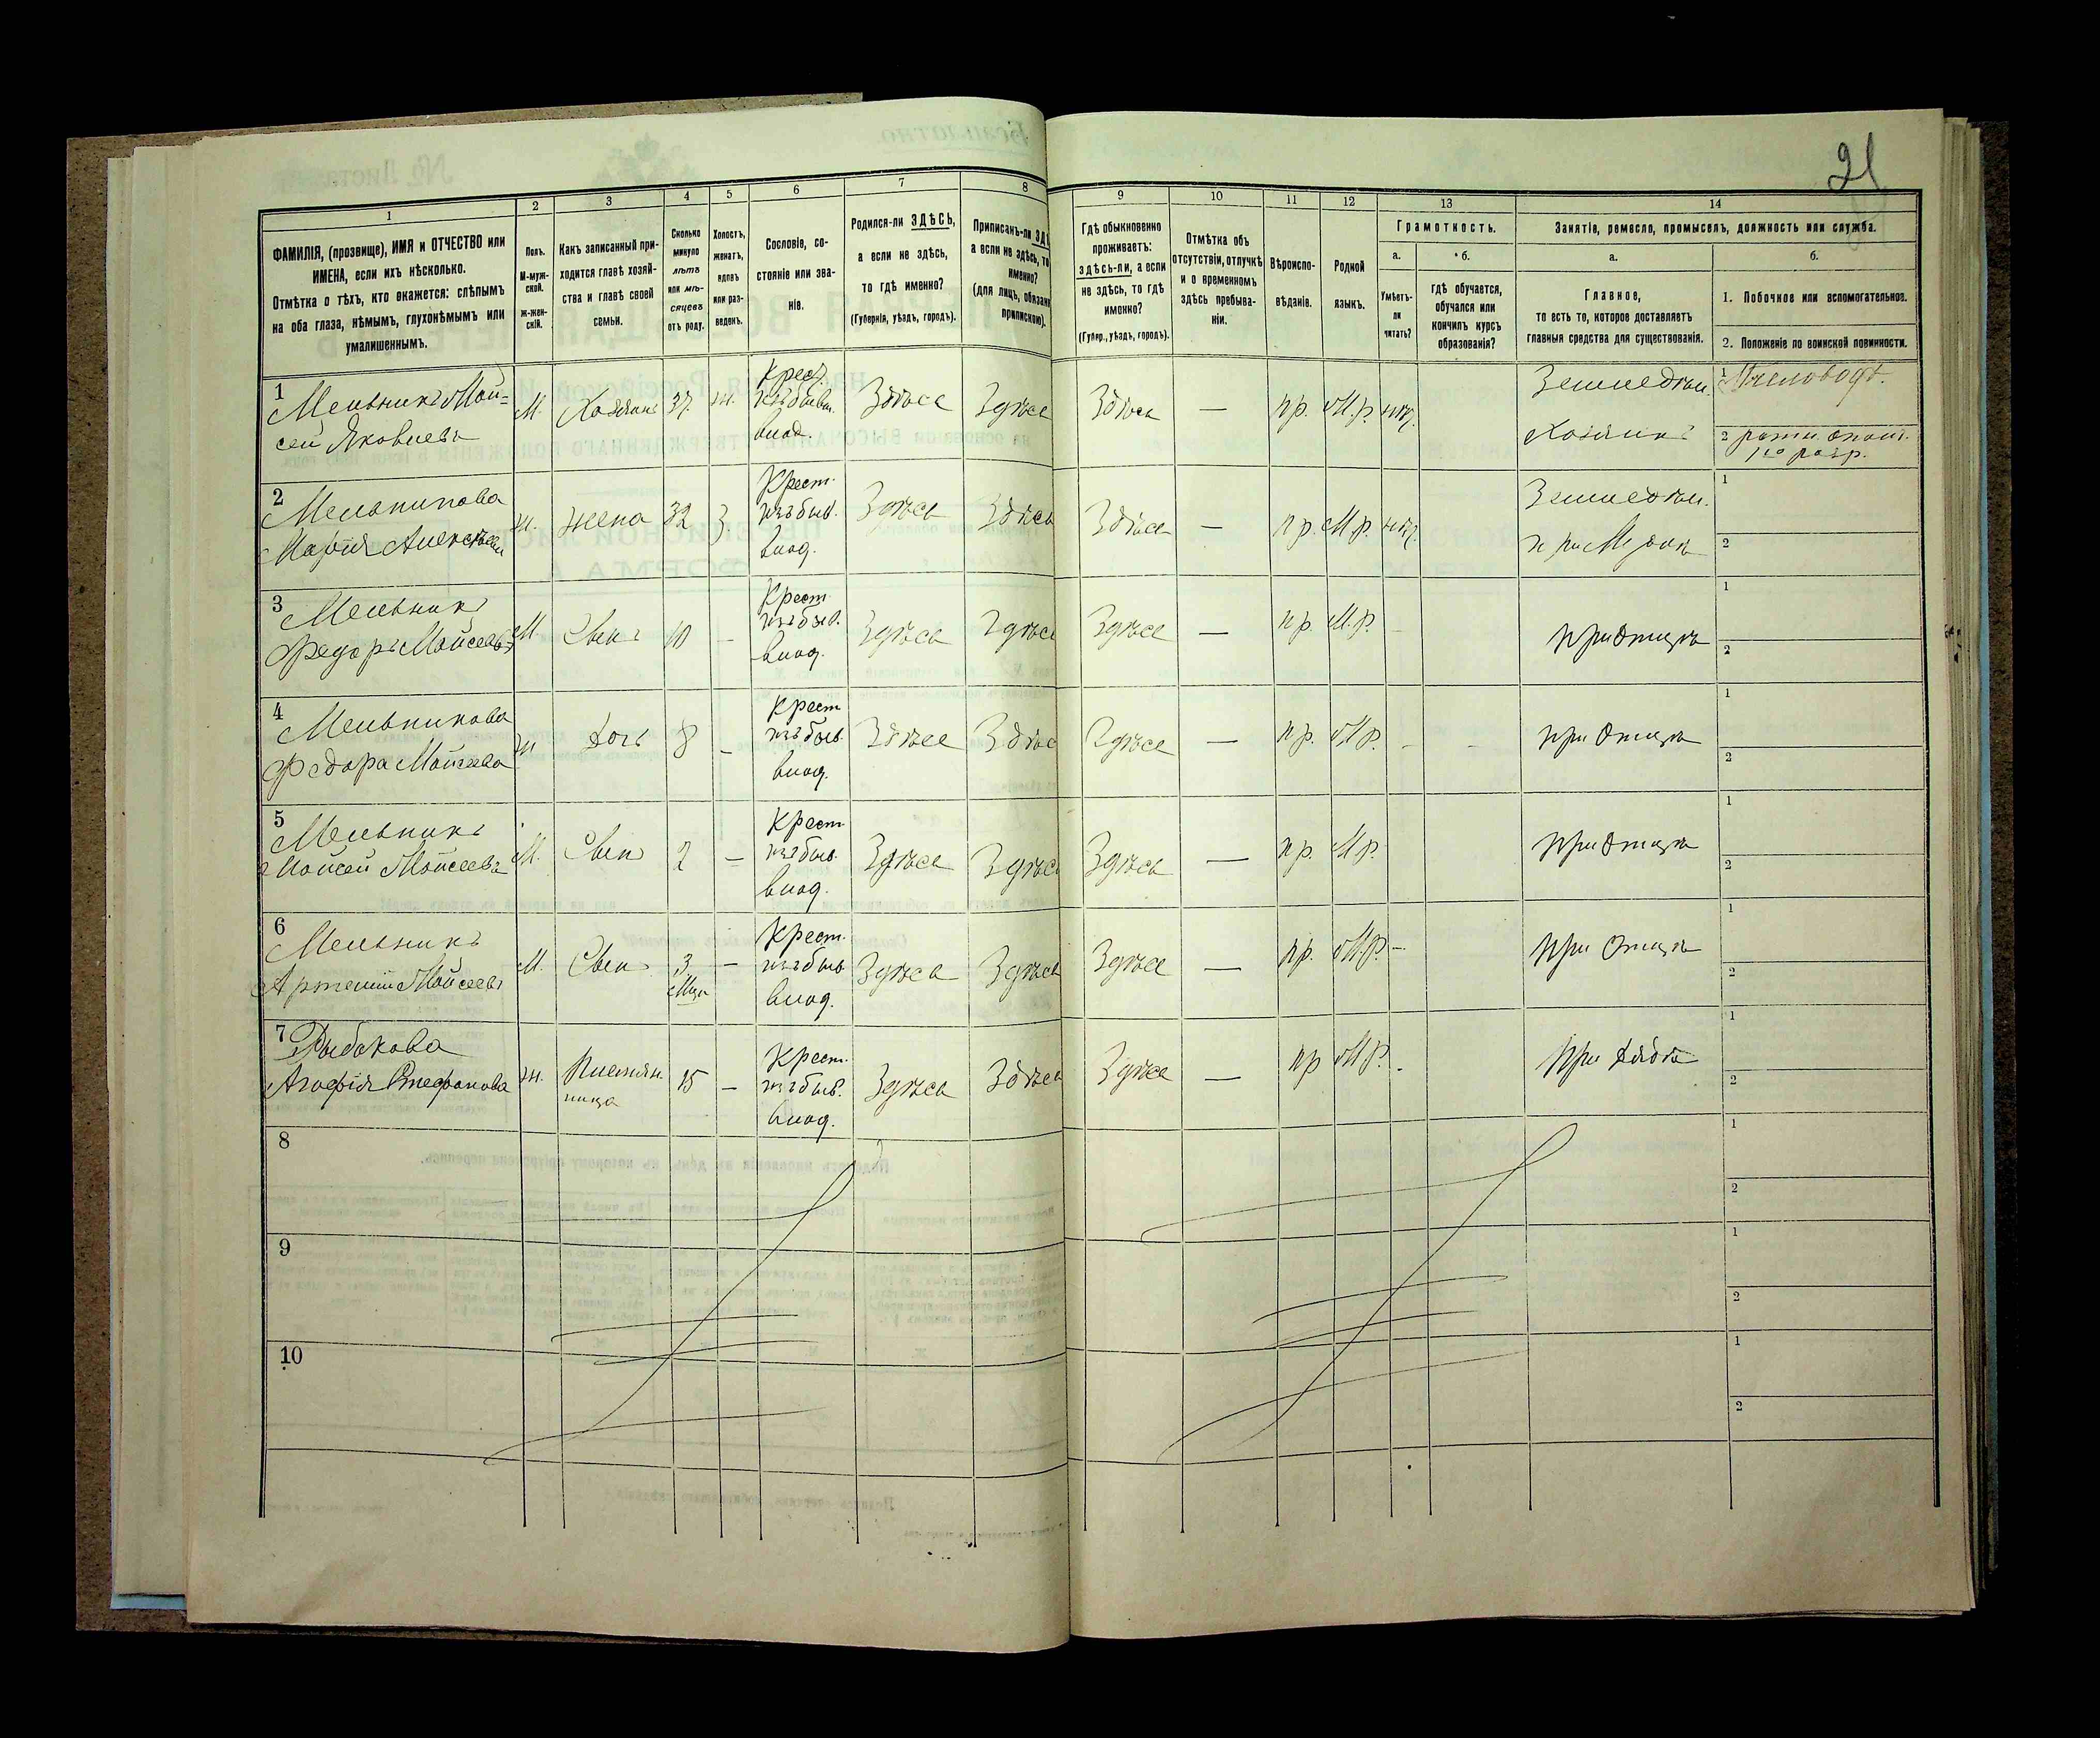 21
1
2
3
4
5
6
7
8
9
10
11
12
13
14
ФАМИЛІЯ, (прозвище), ИМЯ и ОТЧЕСТВО или
ИМЕНА, если ихъ нѣсколько.
Отмѣтка о тѣхъ, кто окажется: слѣпымъ
на оба глаза, нѣмымъ, глухонѣмымъ или
умалишеннымъ.
Полъ.
М-муж-
ской.
Ж-жен-
скій.
Какъ записанный при-
ходится главѣ хозяй-
ства и главѣ своей
семьи.
Сколько
минуло
лѣтъ
или мѣ-
сяцевъ
отъ роду.
Холостъ,
женатъ,
вдовъ
или раз-
веденъ.
Сословіе, со-
стояніе или зва-
ніе.
Родился-ли ЗДѢСЬ,
а если не здѣсь,
то гдѣ именно?
(Губернія, уѣздъ, городъ).
Приписанъ-ли ЗДѢ
а если не здѣсь, то
именно?
(для лицъ, обязан
припискою).
Гдѣ обыкновенно
проживаетъ:
здѣсь-ли, а если
не здѣсь, то гдѣ
именно?
(Губер., уѣздъ, городъ).
Отмѣтка объ
отсутствіи, отлучкѣ
и о временномъ
здѣсь пребыва-
ніи.
Вѣроиспо-
вѣданіе.
Родной
языкъ.
Грамотность.
а.
б.
Умѣетъ-
ли
читать?
гдѣ обучается,
обучался или
кончилъ курсъ
образованія?
Занятія, ремесло, промыселъ, должность или служба.
а.
б.
Главное,
то есть то, которое доставляетъ
главныя средства для существованія.
1. Побочное или вспомогательное.
2. Положеніе по воинской повинности.
1
Мельникъ Мой-
сей Яковлевъ
М. Хозяинъ 37. ж.
Крест.
изъ бывш.
влад.
Здѣсь Здѣсь Здѣсь — пр. М.р. нѣт.
Земледѣл.
Хозяинъ
1 Пчеловодъ.
2 ратн. опол.
1го разр.
2
Мельникова
Марія Алексѣев
ж. жена 32 З
Крест.
изъ быв.
влад.
Здѣсь Здѣсь Здѣсь — пр. М.р. нѣт.
Земледѣл.
при Мужѣ
1
2
3
Мельникъ
Федоръ Мойсеевъ
М. Сынъ 10 —
Крест.
изъ быв.
влад.
Здѣсь Здѣсь Здѣсь — пр. М.р.
при Отцѣ
1
2
4
Мельникова
Федора Мойсеева
ж Дочь 8 —
Крест
изъ быв.
влад.
Здѣсь Здѣсь Здѣсь — пр. М.р. — —
при Отцѣ
1
2
5
Мельникъ
Мойсей Мойсеевъ
М. Сынъ 2 —
Крест.
изъ быв.
влад.
Здѣсь Здѣсь Здѣсь — пр. М.р.
при Отцѣ
1
2
6
Мельникъ
Артемій Мойсеевъ
М. Сынъ 3 —
Мцa
Крест.
изъ быв.
влад.
Здѣсь Здѣсь Здѣсь — пр. М.р. —
при Отцѣ
1
2
7
Рыбакова
Агафія Стефанова
ж. Племян
ница
15 —
Крест.
изъ быв.
влад.
Здѣсь Здѣсь Здѣсь — пр М.р. .
при Дядѣ
1
2
8
1
2
9
1
2
10
1
2